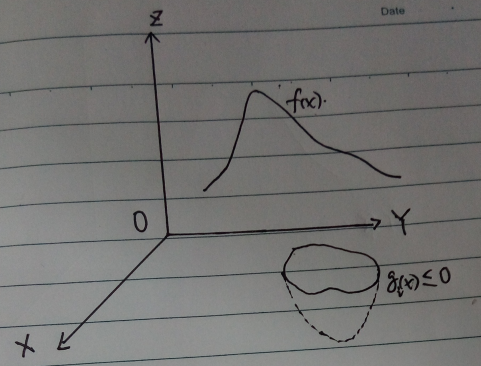 Date
Z
f(x).
O
Y
gᵢ(x) ≤ 0
X